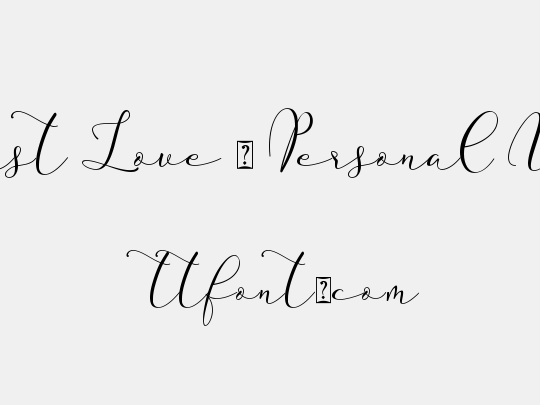 st Love ⍰ Personal U
ttfont⍰com